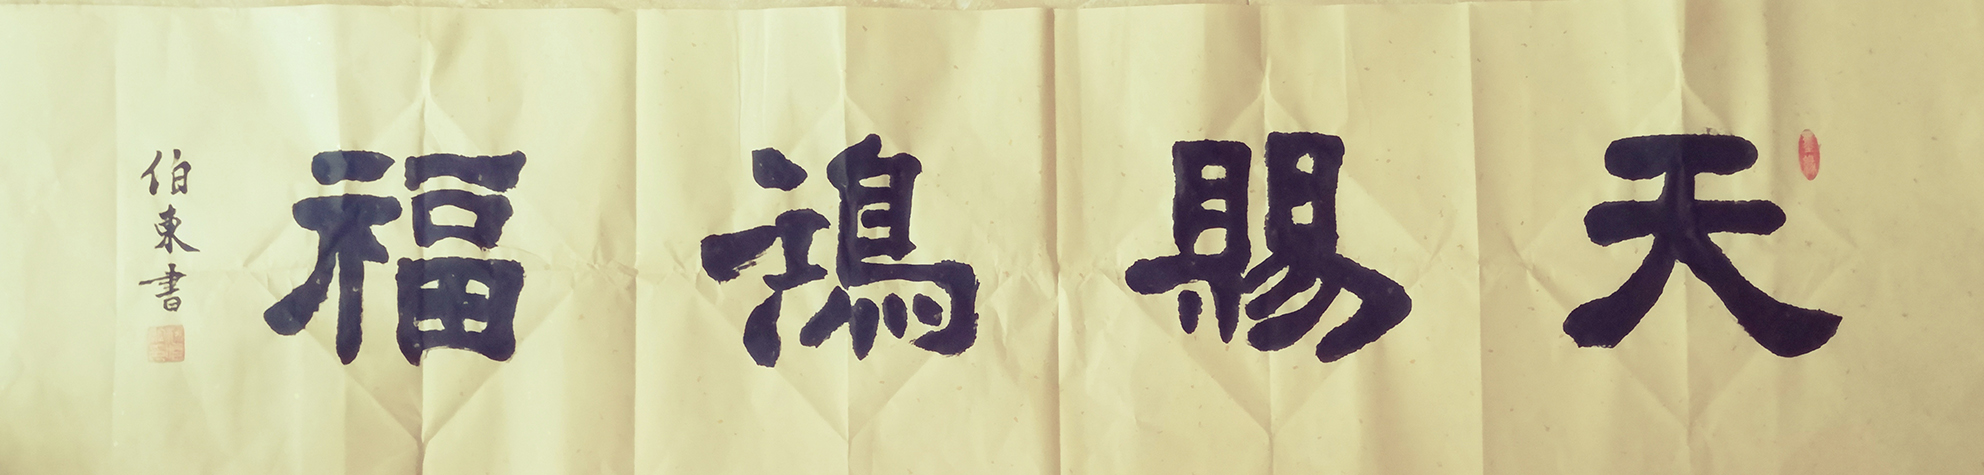 天賜鴻福
伯東書